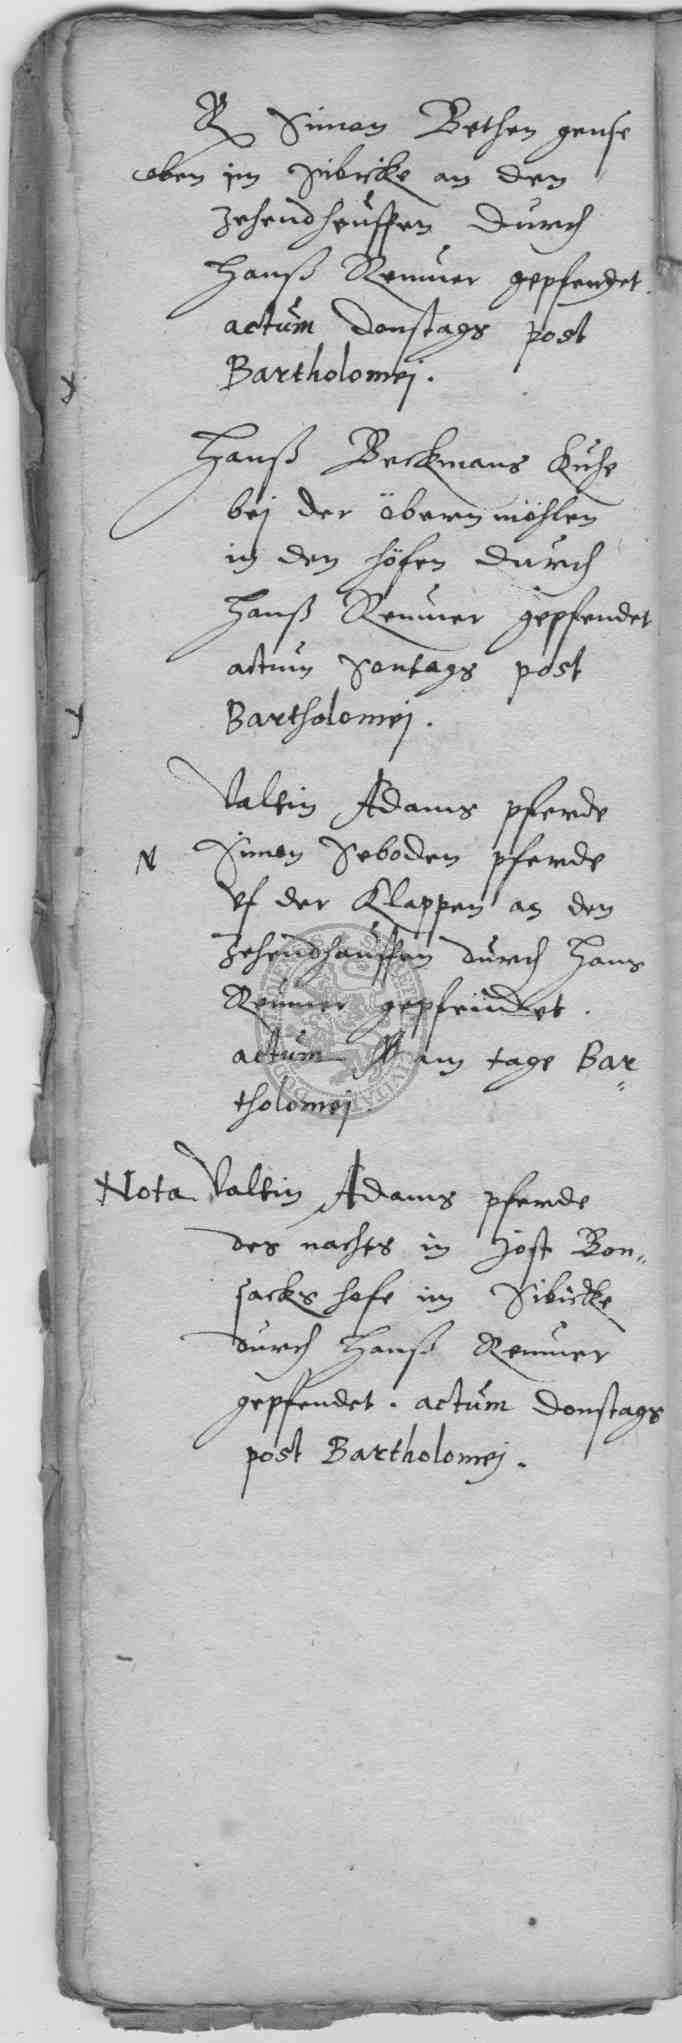 R Simon Bethen gense
oben im Sibicke an den
Zehendheuffen durch
Hanß Remmer gepfendet
actum donstags post
Bartholomej.
Hanß Beckmans Kuhe
bej der öbern möhlen
in den höfen durch
Hanß Remmer gepfendet
actum Sontags post
Bartholomej.
Valtin Adams pferde
N Simon Seboden pferde
vf der Klappen an den
Zehendhauffen durch Hans
Remmer gepfendet.
actum am tage Bar
tholomej
Nota Valtin Adams pferde
des nachts in Jost Bon„
sacks hofe im Sibicke
durch Hanß Remmer
gepfendet. actum donstags
post Bartholomej.